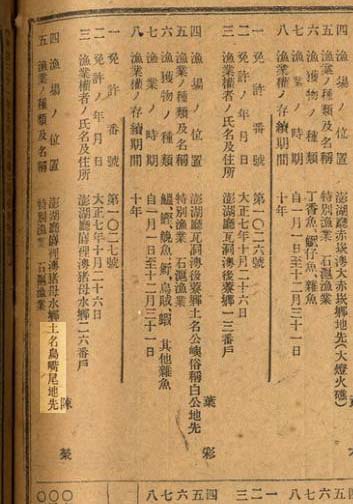 四漁場ノ位置 澎湖廳赤崁澳大赤崁鄉地先(大燈火礁)
五漁業ノ種類及名稱 特別漁業 石滬漁業
六漁獲物ノ種類 丁香魚、鰮仔魚、雜魚
七漁業ノ時期 自一月一日至十二月三十一日
八漁業權ノ存續期間 十年
一免許番號 第一〇二六號
二免許ノ年月日 大正七年十月二十六日
三漁業權者ノ氏名及住所 澎湖廳瓦硐澳後寮鄉一三番戶
葉彩
四漁場ノ位置 澎湖廳瓦硐澳後寮鄉土名公嶼俗稱白公地先
五漁業ノ種類及名稱 特別漁業 石滬漁業
六漁獲物ノ種類 鰮、鰆、鱙魚、鯛、烏賊、蝦、其他雜魚
七漁業ノ時期 自一月一日至十二月三十一日
八漁業權ノ存續期間 十年
一免許番號 第一〇二七號
二免許ノ年月日 大正七年十月二十六日
三漁業權者ノ氏名及住所 澎湖廳嵵裡澳猪母水鄉二六番戶
陳榮
四漁場ノ位置 澎湖廳嵵裡澳猪母水鄉土名鳥嘴尾地先
五漁業ノ種類及名稱 特別漁業 石滬漁業
四
五
六
七
八
一
二
三
四
五
六
七
八
〇〇〇